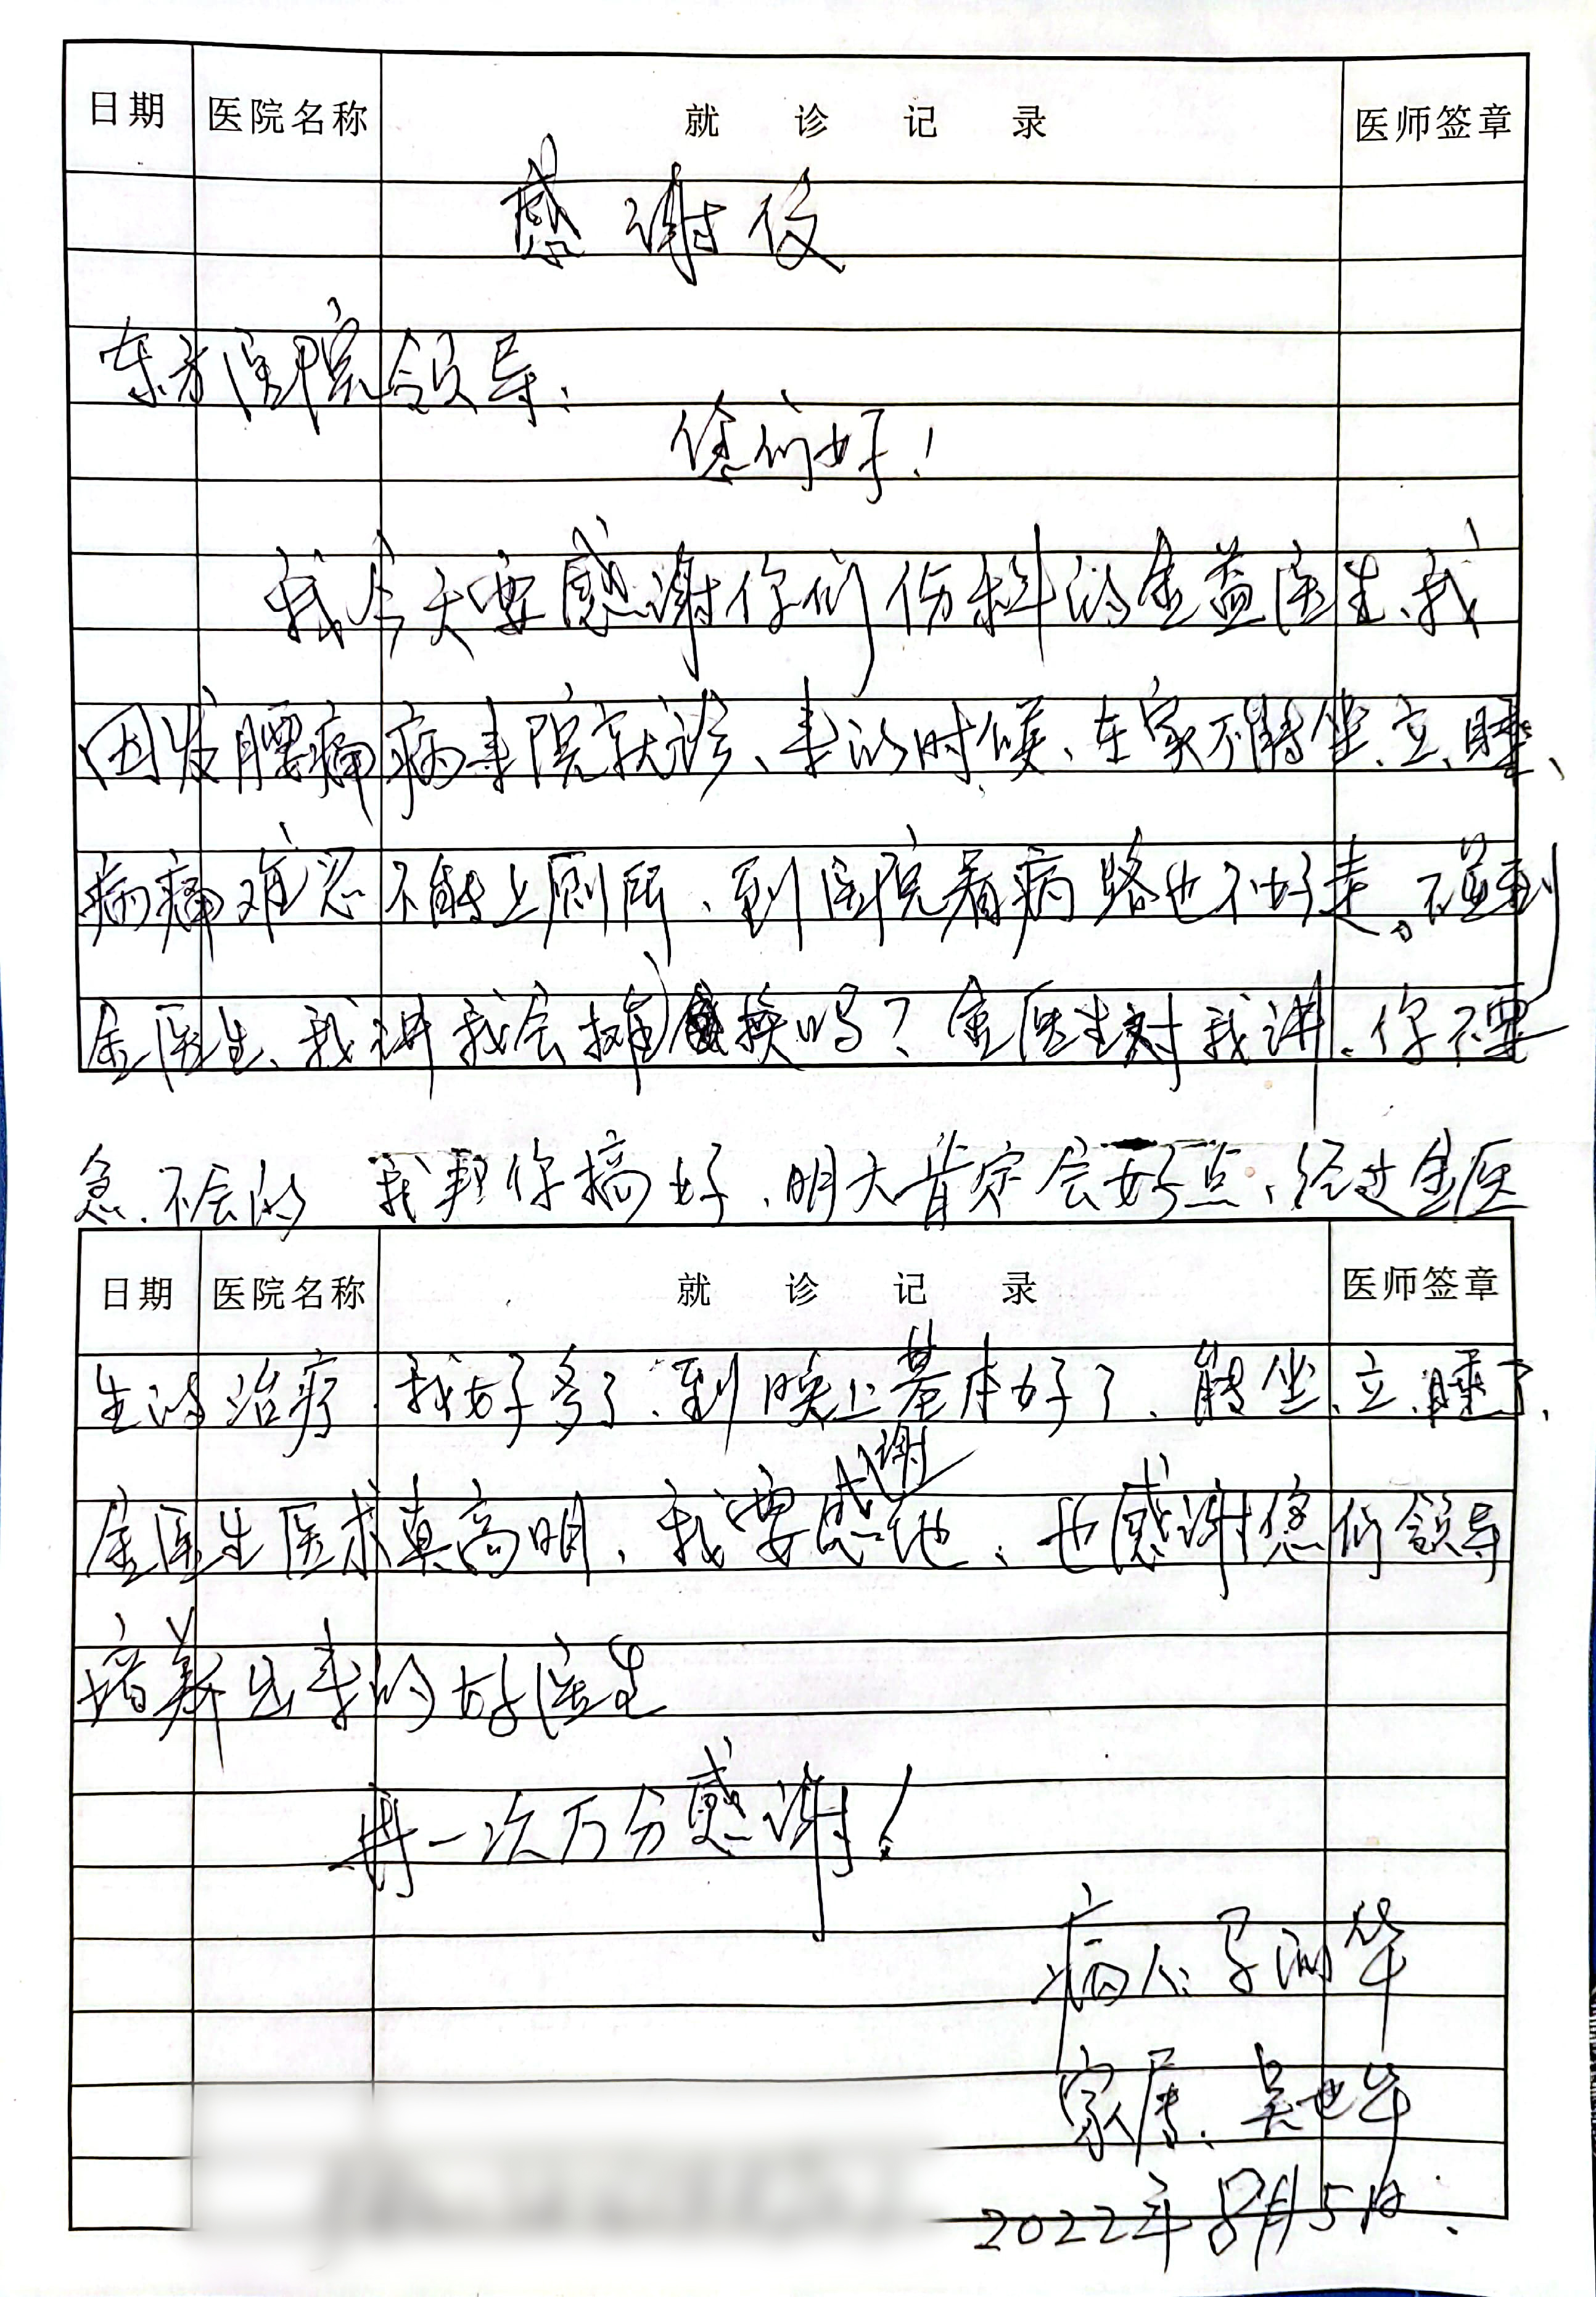 日期 医院名称 就诊记录 医师签章
感谢信
东方医院领导：
您们好！
我今天要感谢你们伤科的金益医生、我
因发腰痛病来院就诊、来的时候、在家不能坐、立、睡、
病痛难忍不能上厕所、到医院看病路也不好走。不碰到
金医生、我讲我会摊痪吗？金医生对我讲、你不要
急、不会的 我帮你搞好、明天肯定会好点、经过金医
日期 医院名称 就诊记录 医师签章
生的治疗、我好多了、到晚上基本好了、能坐、立、睡了、
金医生医术真高明、我要感谢他、也感谢您们领导
培养出来的好医生
再一次万分感谢！
病人：
家属：吴也华
2022年8月5日